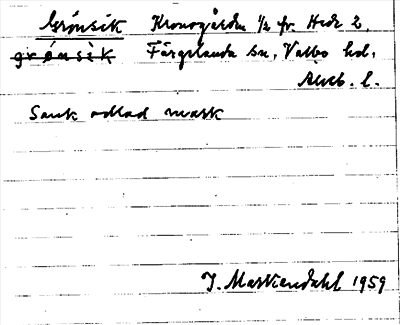 Grönsik Kronogården 1/2 fr. Hede 2,
grönsik Färgelanda sn, Valbo hd,
Älvsb. l.
Sank odlad mark
J. Martiendahl 1959